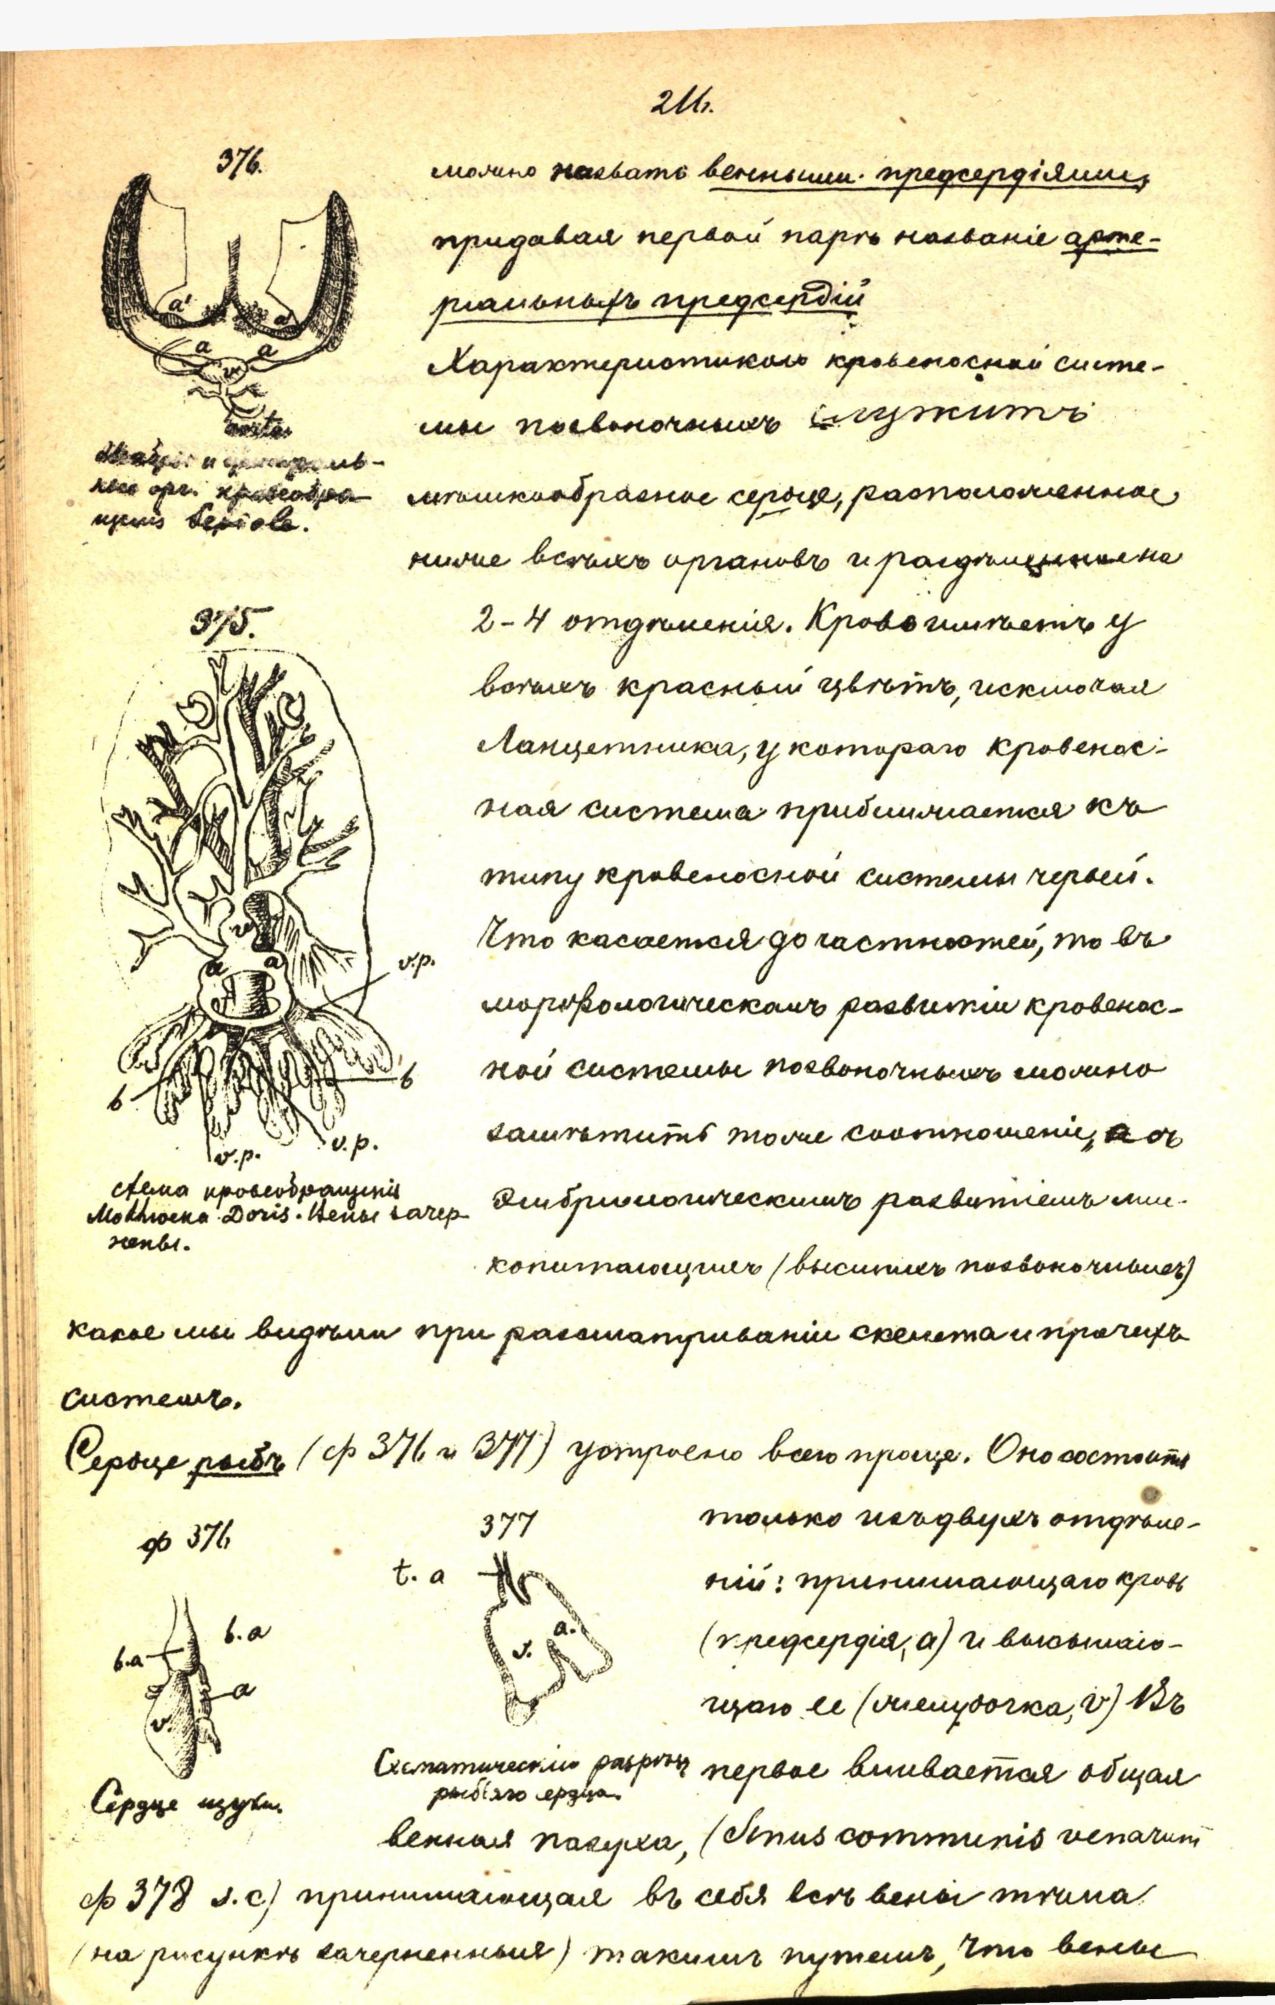 216.
376.
можно назвать венными предсердіями,
придавая первой парѣ названіе арте-
ріальныхъ предсердій
Характеристикою кровеносной систе-
мы позвоночныхъ служитъ
мѣшкообразное сердце, расположенное
ниже всѣхъ органовъ и раздѣленное на
2-4 отдѣленія. Кровь имѣетъ у
всѣхъ красный цвѣтъ, исключая
Ланцетника, у котораго кровенос-
ная система приближается къ
типу кровеносной системы червей.
Что касается до частностей, то въ
морфологическомъ развитіи кровенос-
ной системы позвоночныхъ можно
замѣтить тоже соотношеніе, съ
эмбріологическимъ развитіемъ мле-
копитающихъ (высшихъ позвоночныхъ)
a' a
a a
v
aorta
и
орг. кровообра
щенія Sepiola.
375.
v
a a
A
v.p.
b b
v.p. v.p.
схема кровообращенія
Моллюска Doris. Вены зачер
нены.
какое мы видѣли при разсматриваніи скелета и прочихъ
системъ.
Сердце рыбъ (ф 376 и 377) устроено всего проще. Оно состоитъ
только изъ двухъ отдѣле-
ній: принимающаго кровь
(предсердія, a) и высылаю-
щаго ее (желудочка, v) Въ
первое вливается общая
ф 376
b.a
b.a
a
v.
Сердце щуки.
377
t. a
a.
v.
Схематическій разрѣзъ
рыбьяго сердца.
венная пазуха, (Sinus communis venarum
ф 378 s.c) принимающая въ себя всѣ вены тѣла
(на рисункѣ зачерненныя) такимъ путемъ, что вены